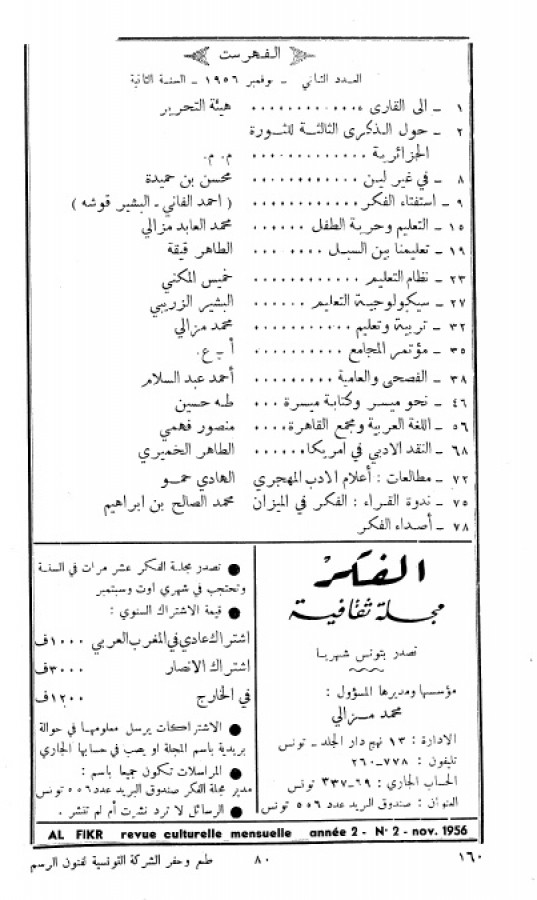 الفهرست
العدد الثاني - نوفمبر ١٩٥٦ - السنة الثانية
١ - الى القارىء ........... هيئة التحرير
٢ - حول الذكرى الثالثة للثورة
الجزائرية ............. م.م.
٨ - في غير لين ............ محسن بن حميدة
٩ - استفتاء الفكر ........... ( احمد الفاني - البشير قوشه )
١٥ - التعليم وحرية الطفل ...... محمد العابد مزالي
١٩ - تعليمنا بين السبل ... .. الطاهر قيقة
٢٣ - نظام التعليم ............ خميس المكني
٢٧ - سيكولوجية التعليم ...... البشير الزريبي
٣٢ - تربية وتعليم ........... محمد مزالي
٣٥ - مؤتمر المجامع .......... أ - ع.
٣٨ - الفصحى والعامية ......... أحمد عبد السلام
٤٦ - نحو ميسر وكتابة ميسرة ... طه حسين
٥٦ - اللغة العربية ومجمع القاهرة.... منصور فهمي
٦٨ - النقد الادبي في امريكا...... الطاهر الخميري
٧٢ - مطالعات : أعلام الادب المهجري الهادي حمو
٧٥ - ندوة القراء : الفكر في الميزان محمد الصالح بن ابراهيم
٧٨ - أصداء الفكر
الفكر
مجلة ثقافية
تصدر بتونس شهريا
مؤسسها ومديرها المسؤول :
محمد مزالي
الادارة : ١٣ نهج دار الجلد - تونس
تليفون : ٧٧٨-٢٦٠
الحساب الجاري : ٦٩-٣٣٧ تونس
العنوان : صندوق البريد عدد ٥٥٦ تونس
● تصدر مجلة الفكر عشر مرات في السنة
وتحتجب في شهري اوت وسبتمبر
● قيمة الاشتراك السنوي :
اشتراك عادي في المغرب العربي ١٠٠٠ف
اشتراك الانصار ٣٠٠٠ف
في الخارج ١٢٠٠ف
● الاشتراكات يرسل معلومها في حوالة
بريدية باسم المجلة او يصب في حسابها الجاري
● المراسلات تكون جميعا باسم :
مدير مجلة الفكر صندوق البريد عدد ٥٥٦ تونس
● الرسائل لا ترد نشرت أم لم تنشر .
AL FIKR revue culturelle mensuelle année 2 - N° 2 - nov. 1956
١٦٠ ٨٠ طبع وحفر الشركة التونسية لفنون الرسم